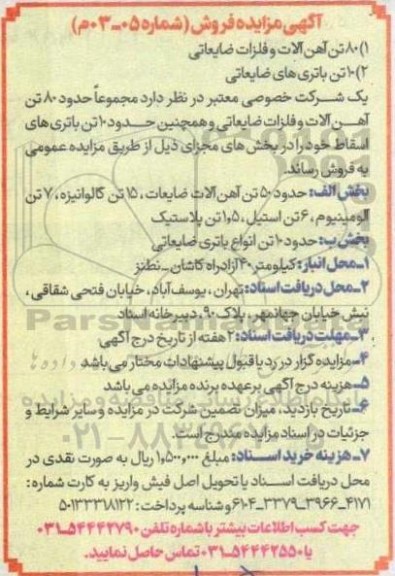 آگهی مزایده فروش (شماره ۰۵-۰۳-م)
۱) ۸۰ تن آهن آلات و فلزات ضایعاتی
۲) ۱۰ تن باتری های ضایعاتی
یک شرکت خصوصی معتبر در نظر دارد مجموعاً حدود ۸۰ تن
آهن آلات و فلزات ضایعاتی و همچنین حدود ۱۰ تن باتری های
اسقاط خود را در بخش های مجزای ذیل از طریق مزایده عمومی
به فروش رساند.
بخش الف: حدود ۵۰ تن آهن آلات ضایعات، ۱۵ تن گالوانیزه، ۷ تن
آلومینیوم، ۶ تن استیل، ۱,۵ تن پلاستیک
بخش ب: حدود ۱۰ تن انواع باتری ضایعاتی
۱- محل انبار: کیلومتر ۴۰ آزادراه کاشان - نطنز
۲- محل دریافت اسناد: تهران، یوسف آباد، خیابان فتحی شقاقی،
نبش خیابان جهانمهر، پلاک ۹۰، دبیرخانه اسناد
۳- مهلت دریافت اسناد: ۲ هفته از تاریخ درج آگهی
۴- مزایده گزار در رد یا قبول پیشنهادات مختار می باشد
۵- هزینه درج آگهی بر عهده برنده مزایده می باشد
۶- تاریخ بازدید، میزان تضمین شرکت در مزایده و سایر شرایط و
جزئیات در اسناد مزایده مندرج است.
۷- هزینه خرید اسناد: مبلغ ۱,۵۰۰,۰۰۰ ریال به صورت نقدی در
محل دریافت اسناد یا تحویل اصل فیش واریز به کارت شماره:
۶۱۰۴-۳۳۷۹-۳۹۶۶-۴۱۷۱ و شناسه پرداخت: ۵۰۱۳۳۳۱۸۱۲۲
جهت کسب اطلاعات بیشتر با شماره تلفن ۵۴۴۴۲۷۹۰-۰۳۱
یا ۵۴۴۴۲۵۵۰-۰۳۱ تماس حاصل نمایید.
ParsNamadData